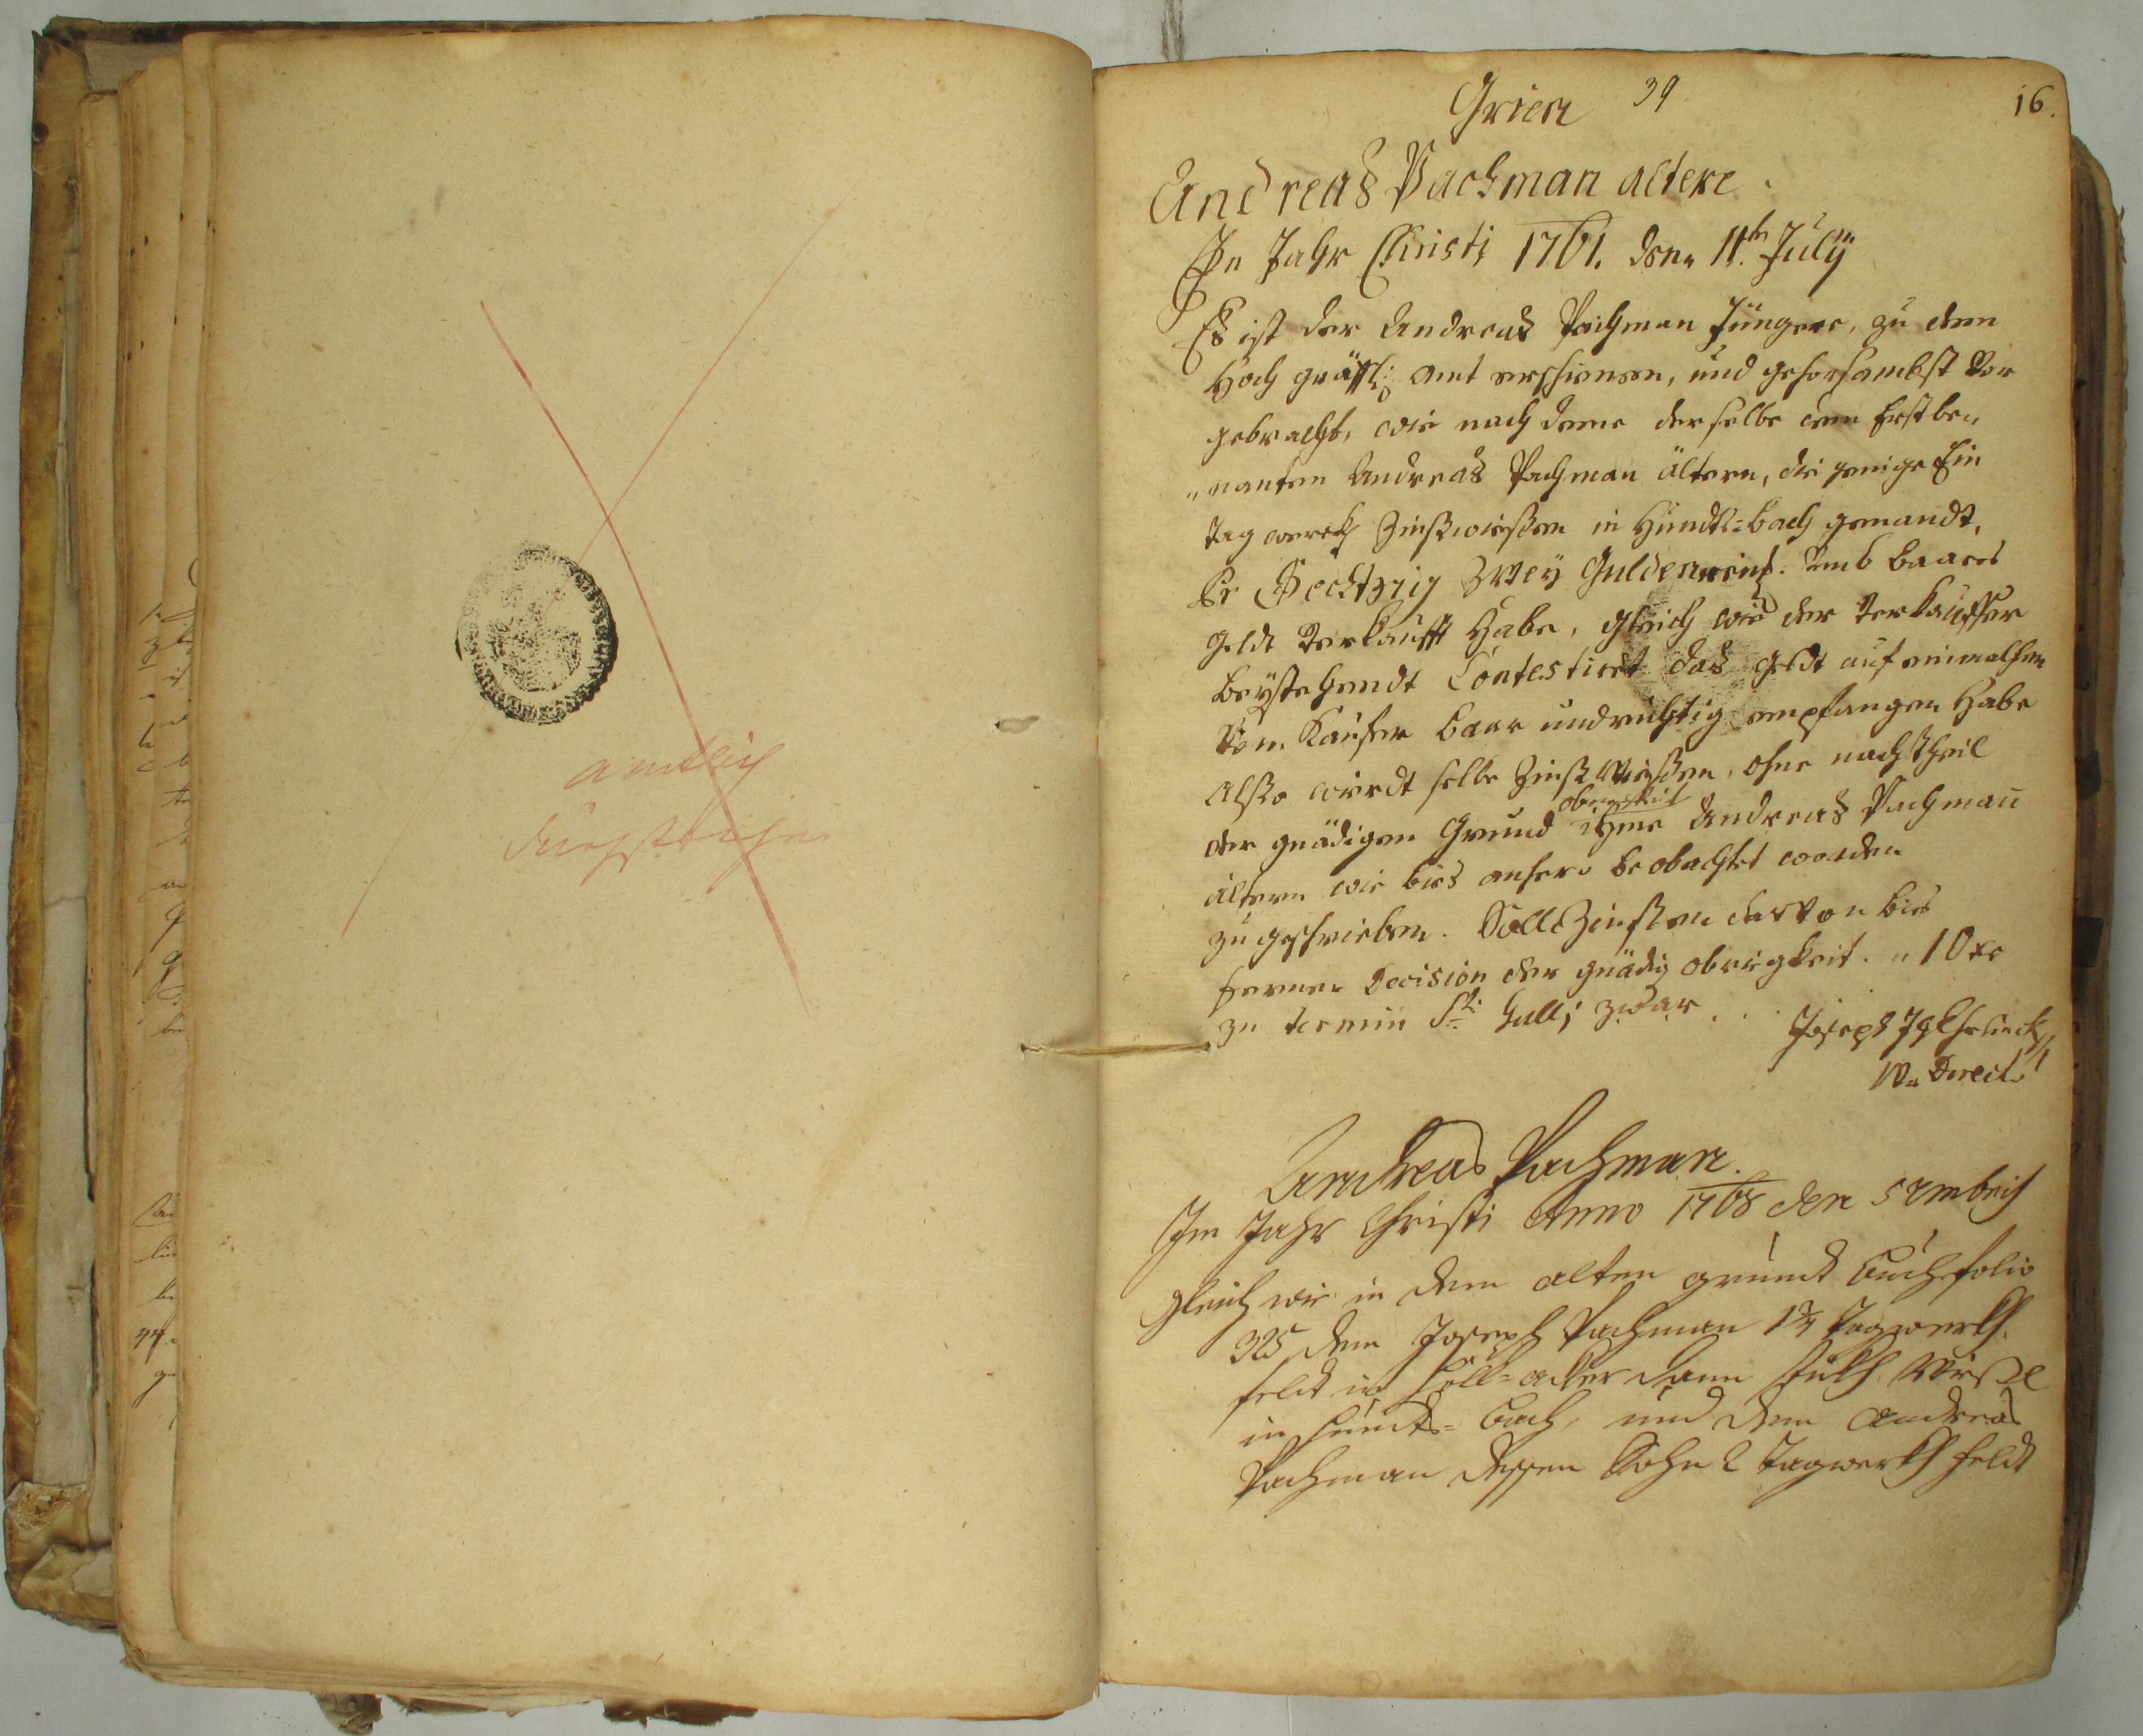 amtlich
durchstrichen
Grien 39
16.
Andreas Pachman altere.
Im Jahr Christi 1761. den 11ten July
Es ist der Andreas Pachman Jüngere, zu dem
Hoch gräffl: amt erschienen, und gehorsambst vor
gebracht, wie nach deme derselbe dem Erst be„
„nanten Andreas Pachman ältern, die jenige Ein
tag werckh Zinßwießen in Hundts=bach genandt,
Pr Sechtzig Zwey Gulden reinl. umb baares
geldt verkaufft Habe, gleich wie der verkauffer
beystehendt Contestiret das geldt auf einmahl
vom Kaufer baar und richtig empfangen Habe
Alßo wirdt selbe Zinß Wießen, ohne nachtheil
der gnädigen Grund obrigkeit ihme Andreas Pachman
ältern wie bies anhero beobachtet worden
zugeschrieben. Soll Zinßen darvon bies
ferner Decision der gnädig obrigkeit. „ 10 xr
zu termin Sti Galli zwar . . .
Joseph
Direct.
Andreas Pachman.
Im Jahr Christi Anno 1768 den 5
gleich wie in dem alten grundt buch folio
325 dem Joseph Pachman 1¾ Tagwerkh.
feldt in Höll=acker dann Wießl
in Hundts=bach, und dem Andreas
Pachman dessen Sohn 2 Tagwerkh feldt